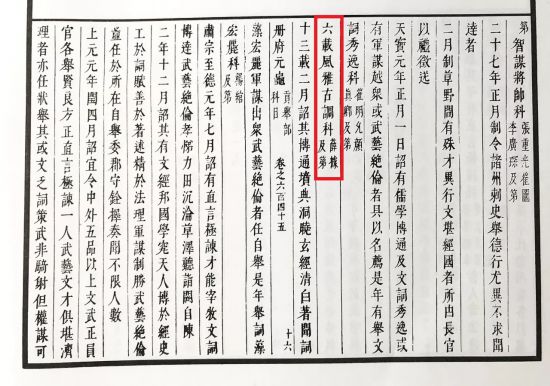 第 智謀將帥科 張重光崔圓李廣琛及第
二十七年正月制令諸州刺史舉德行尤異不求聞
達者
二月制草野間有殊才異行文堪經國者所由長官
以禮徵送
天寶元年正月一日詔有儒學博通及文詞秀逸或
有軍謀越衆或武藝絶倫者具以名薦是年有舉文
詞秀逸科 崔明允顏真卿及第
六載風雅古調科 薛據及第
十三載二月詔其博通墳典洞曉玄經清白著聞詞
册府元龜 貢舉部 科目 卷之六百四十五 十六
藻宏麗軍謀出衆武藝絶倫者任自舉是年舉詞藻
宏麗科 楊綰及第
肅宗至德元年七月詔有直言極諫才能宰牧文詞
博達武藝絶倫孝悌力田沉淪草澤聽詣闕自陳
二年十二月詔其有文經邦國學究天人博於經史
工於詞賦善於著述精於法理軍謀制勝武藝絶倫
並任於所在自舉委郡守銓擇奏聞不限人數
上元元年閏四月詔宜令中外五品以上文武正員
官各舉賢良方正直言極諫一人武藝文才俱堪濟
理者亦任狀舉其或文乏詞策武非騎射但權謀可